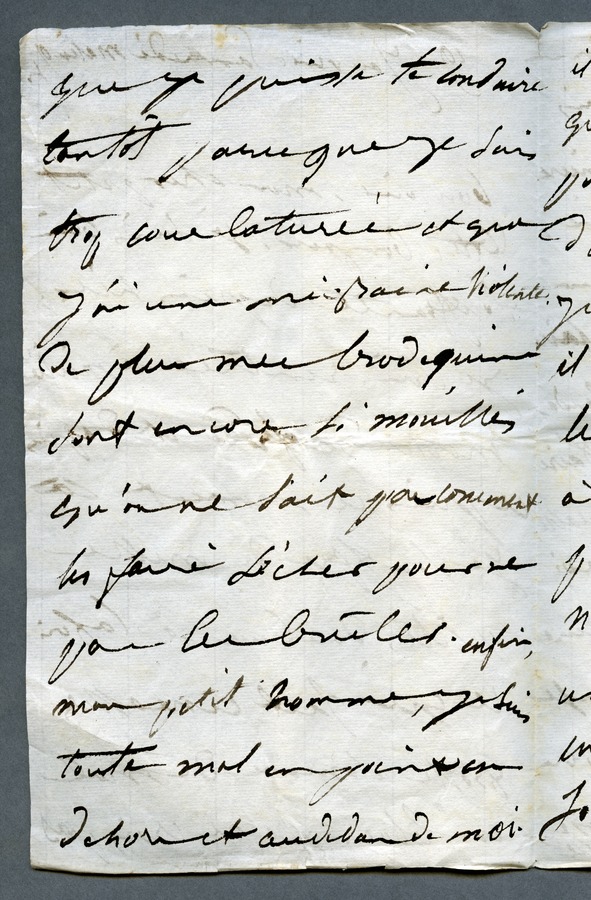 que je puisse te conduire
tantôt parceque je suis
trop courbaturée et que
j'ai une migraine violente.
De plus mes brodequins
sont encore si mouillés
qu'on ne sait pas comment
les faire sécher pour ne
pas les brûler. enfin,
mon petit homme, je suis
toute mal en point en
dehors et au dedans de moi.